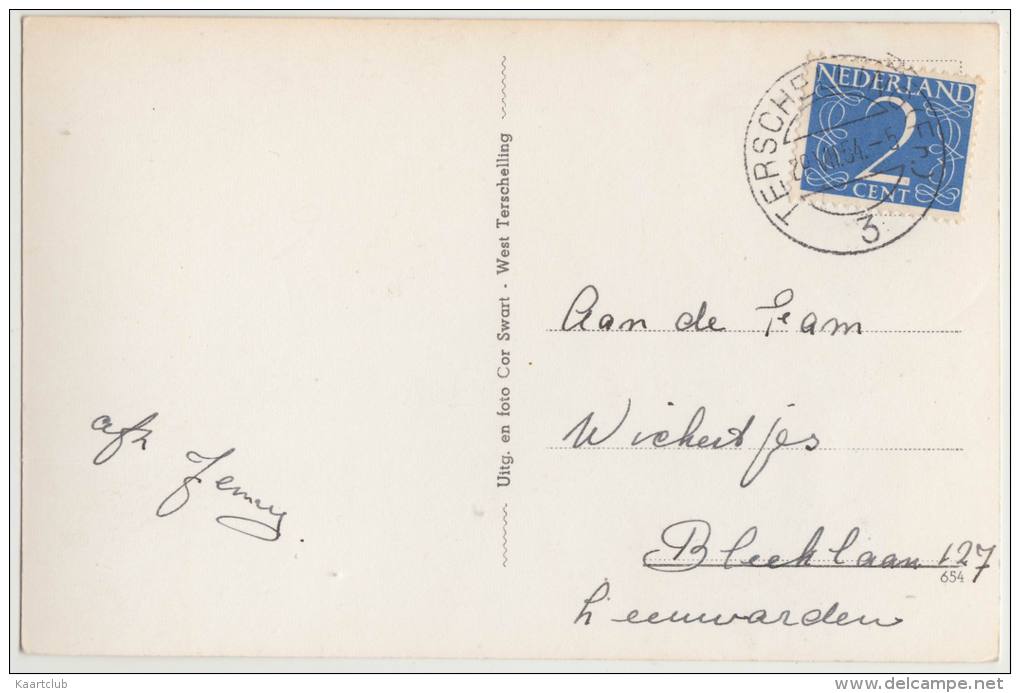 NEDERLAND
2
CENT
TERSCHE
VIII.54.-5
3
Uitg. en foto Cor Swart - West Terschelling
Aan de Fam
Wichertjes
Bleeklaan 127
654
Leeuwarden
afz
Jenny.
Kaartclub
www.delcampe.net